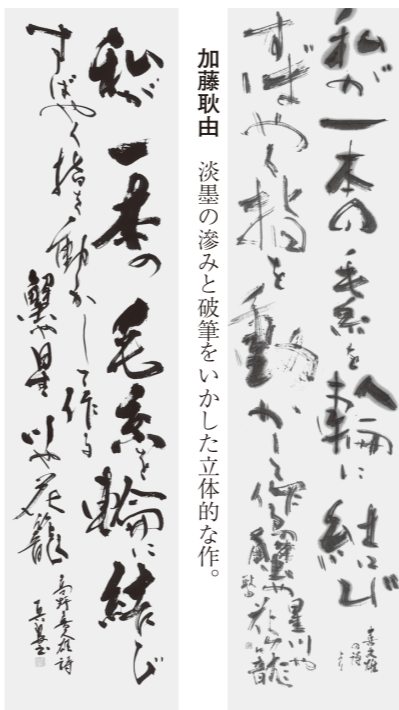 私が一本の毛糸を輪に結び
すばやく指を動かして作る蟹や星川や花籠
喜久雄
の詩
より
耿由
加藤耿由 淡墨の滲みと破筆をいかした立体的な作。
私が一本の毛糸を輪に結び
すばやく指を動かして作る
蟹や星川や花籠
高野喜久雄詩